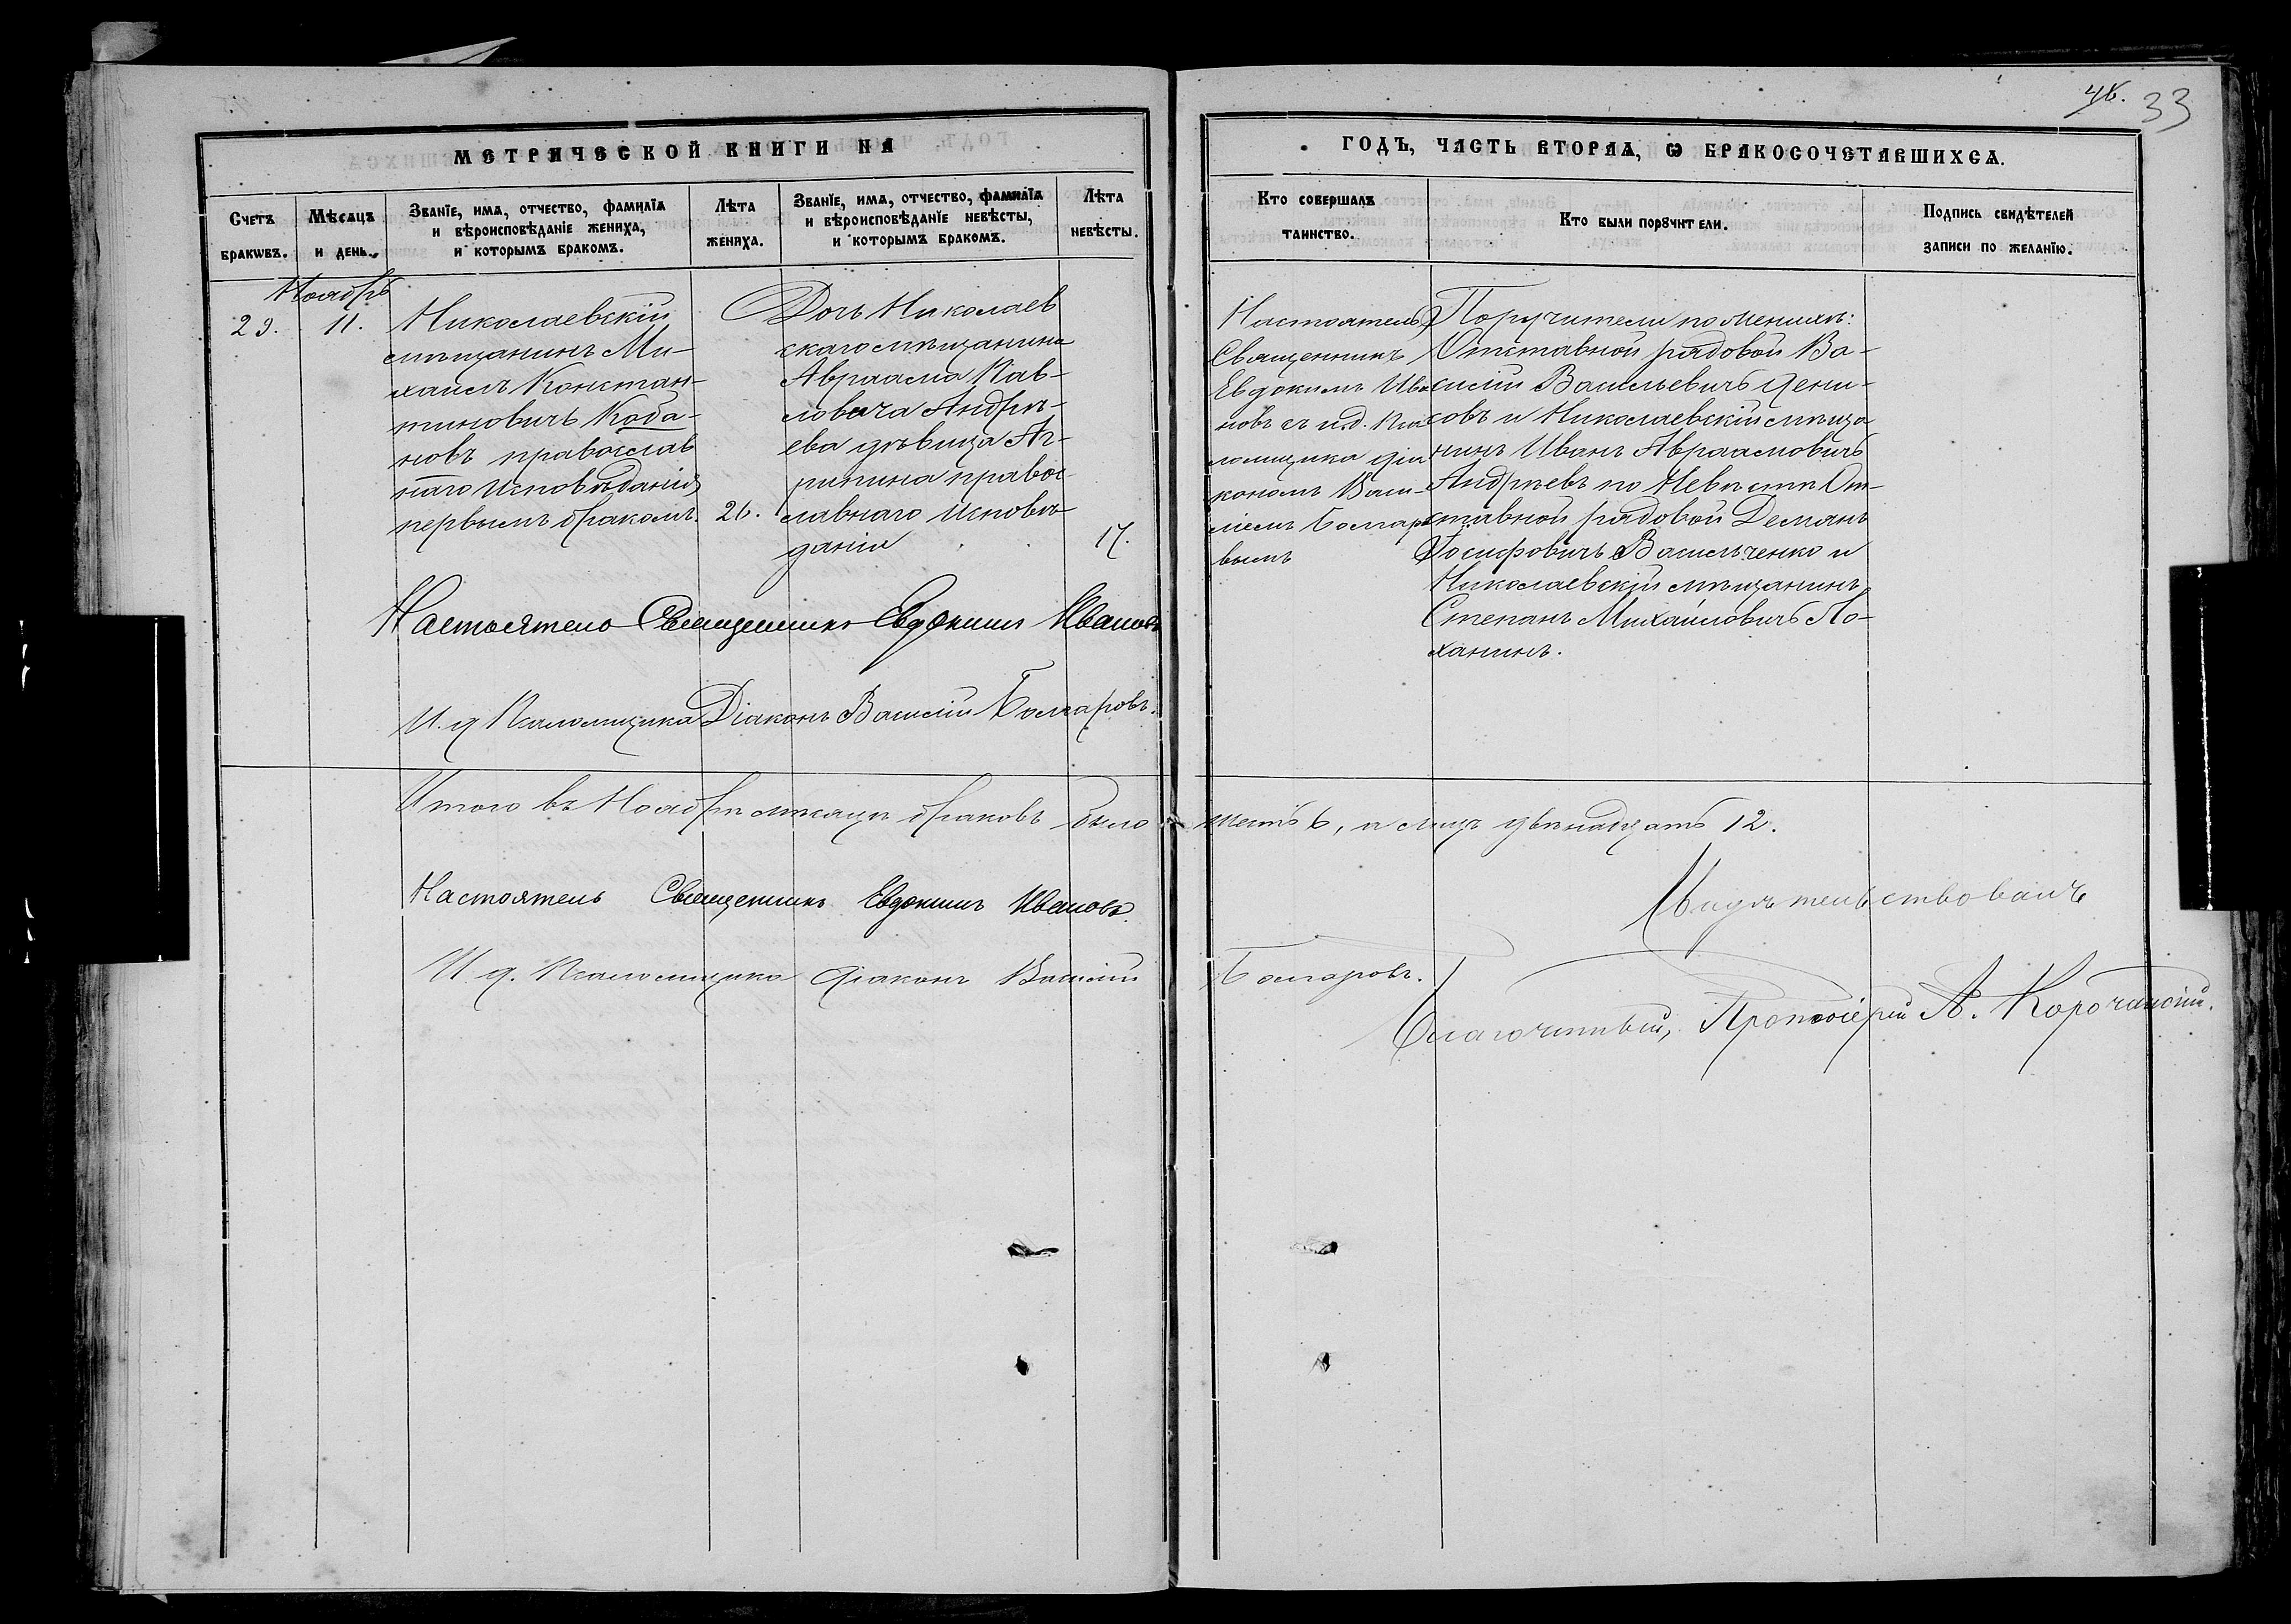 46. 33
МЕТРИЧЕСКОЙ КНИГИ НА
ГОДЪ, ЧАСТЬ ВТОРАѦ, Ѡ БРАКОСОЧЕТАВШИХСѦ.
Счетъ браковъ.
Мѣсяцъ и день.
Званїе, имѧ, отчество, фамилїѧ
и вѣроисповѣданїе жениха,
и которымъ бракомъ.
Лѣта
жениха.
Званїе, имѧ, отчество, фамилїѧ
и вѣроисповѣданїе невѣсты,
и которымъ бракомъ.
Лѣта
невѣсты.
Кто совершалъ
таинство.
Кто были порꙋчители.
Подпись свидѣтелей
записи по желанїю.
Ноябрь
29. 11.
Николаевскій
мѣщанинъ Ми-
хаилъ Констан-
тиновичъ Коба-
новъ православ
наго исповѣданія
первымъ бракомъ. 26.
Дочь Николаев
скаго мѣщанина
Авраама Пав-
ловича Андрѣ-
ева дѣвица Аг-
рипина правос
лавнаго исповѣ-
данія 17.
Настоятель
Священникъ
Евдокимъ Ива
новъ съ и.д. Пса
ломщика діа
кономъ Васи-
ліемъ Болгаро
вымъ
Поручители по женихѣ:
Отставной рядовой Ва-
силій Васильевичъ Дени-
совъ и Николаевскій мѣща
нинъ Иванъ Авраамовичъ
Андрѣевъ по Невѣстѣ От-
ставной рядовой Демьянъ
Іосифовичъ Васильченко и
Николаевскій мѣщанинъ
Степанъ Михаиловичъ Ло-
ханинъ.
Настоятель Священникъ Евдокимъ Ивановъ
И. д Псаломщика Діаконъ Василій Болгаровъ.
Итого въ Ноябрѣ мѣсяцѣ браковъ было шесть 6, а лицъ двѣнадцать 12.
Настоятель Священникъ Евдокимъ Ивановъ.
И. д. Псаломщика Діаконъ Василій Болгаровъ.
Свидѣтельствовалъ
Благочинный, Протоіерей А. Корочанскій.